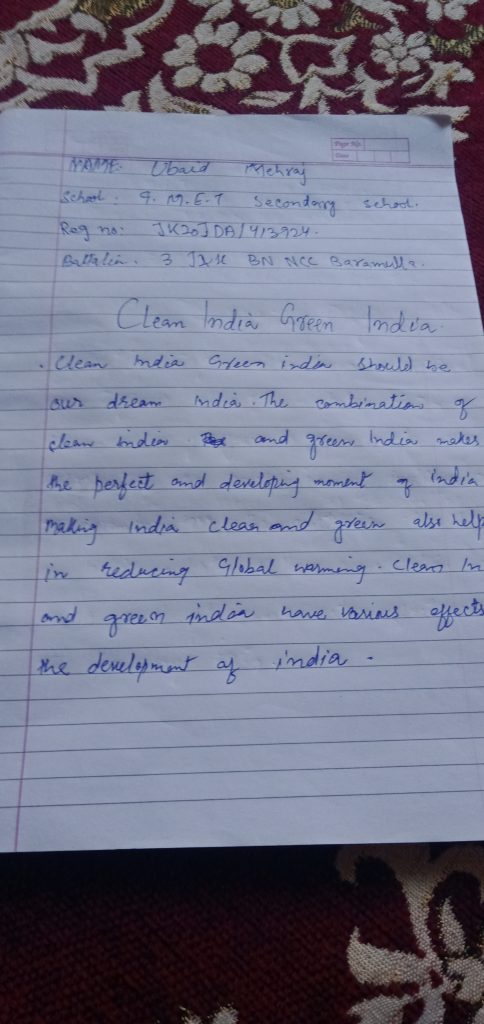 Page No.
Date
NAME: Ubaid Mehraj
School: G. M. E. T Secondary school.
Reg no: JK20JDA/413924.
Battalin. 3 J&K BN NCC Baramulla.
Clean India Green India.
. Clean India Green india should be
our dream india. The combination of
clean india and green India makes
the perfect and developing moment of india
making india clean and green also help
in reducing Global warming. Clean In
and green india have various effects
the development of india.